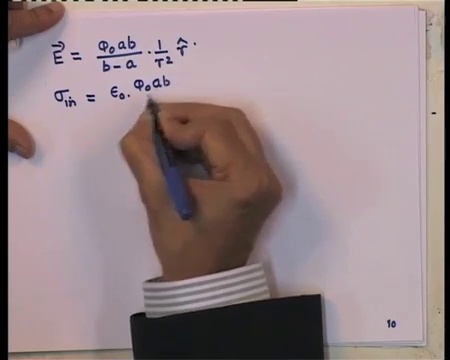 E⃗ = φ₀ab/(b-a) · 1/r² r̂.
σin = ε₀. φ₀ab
10